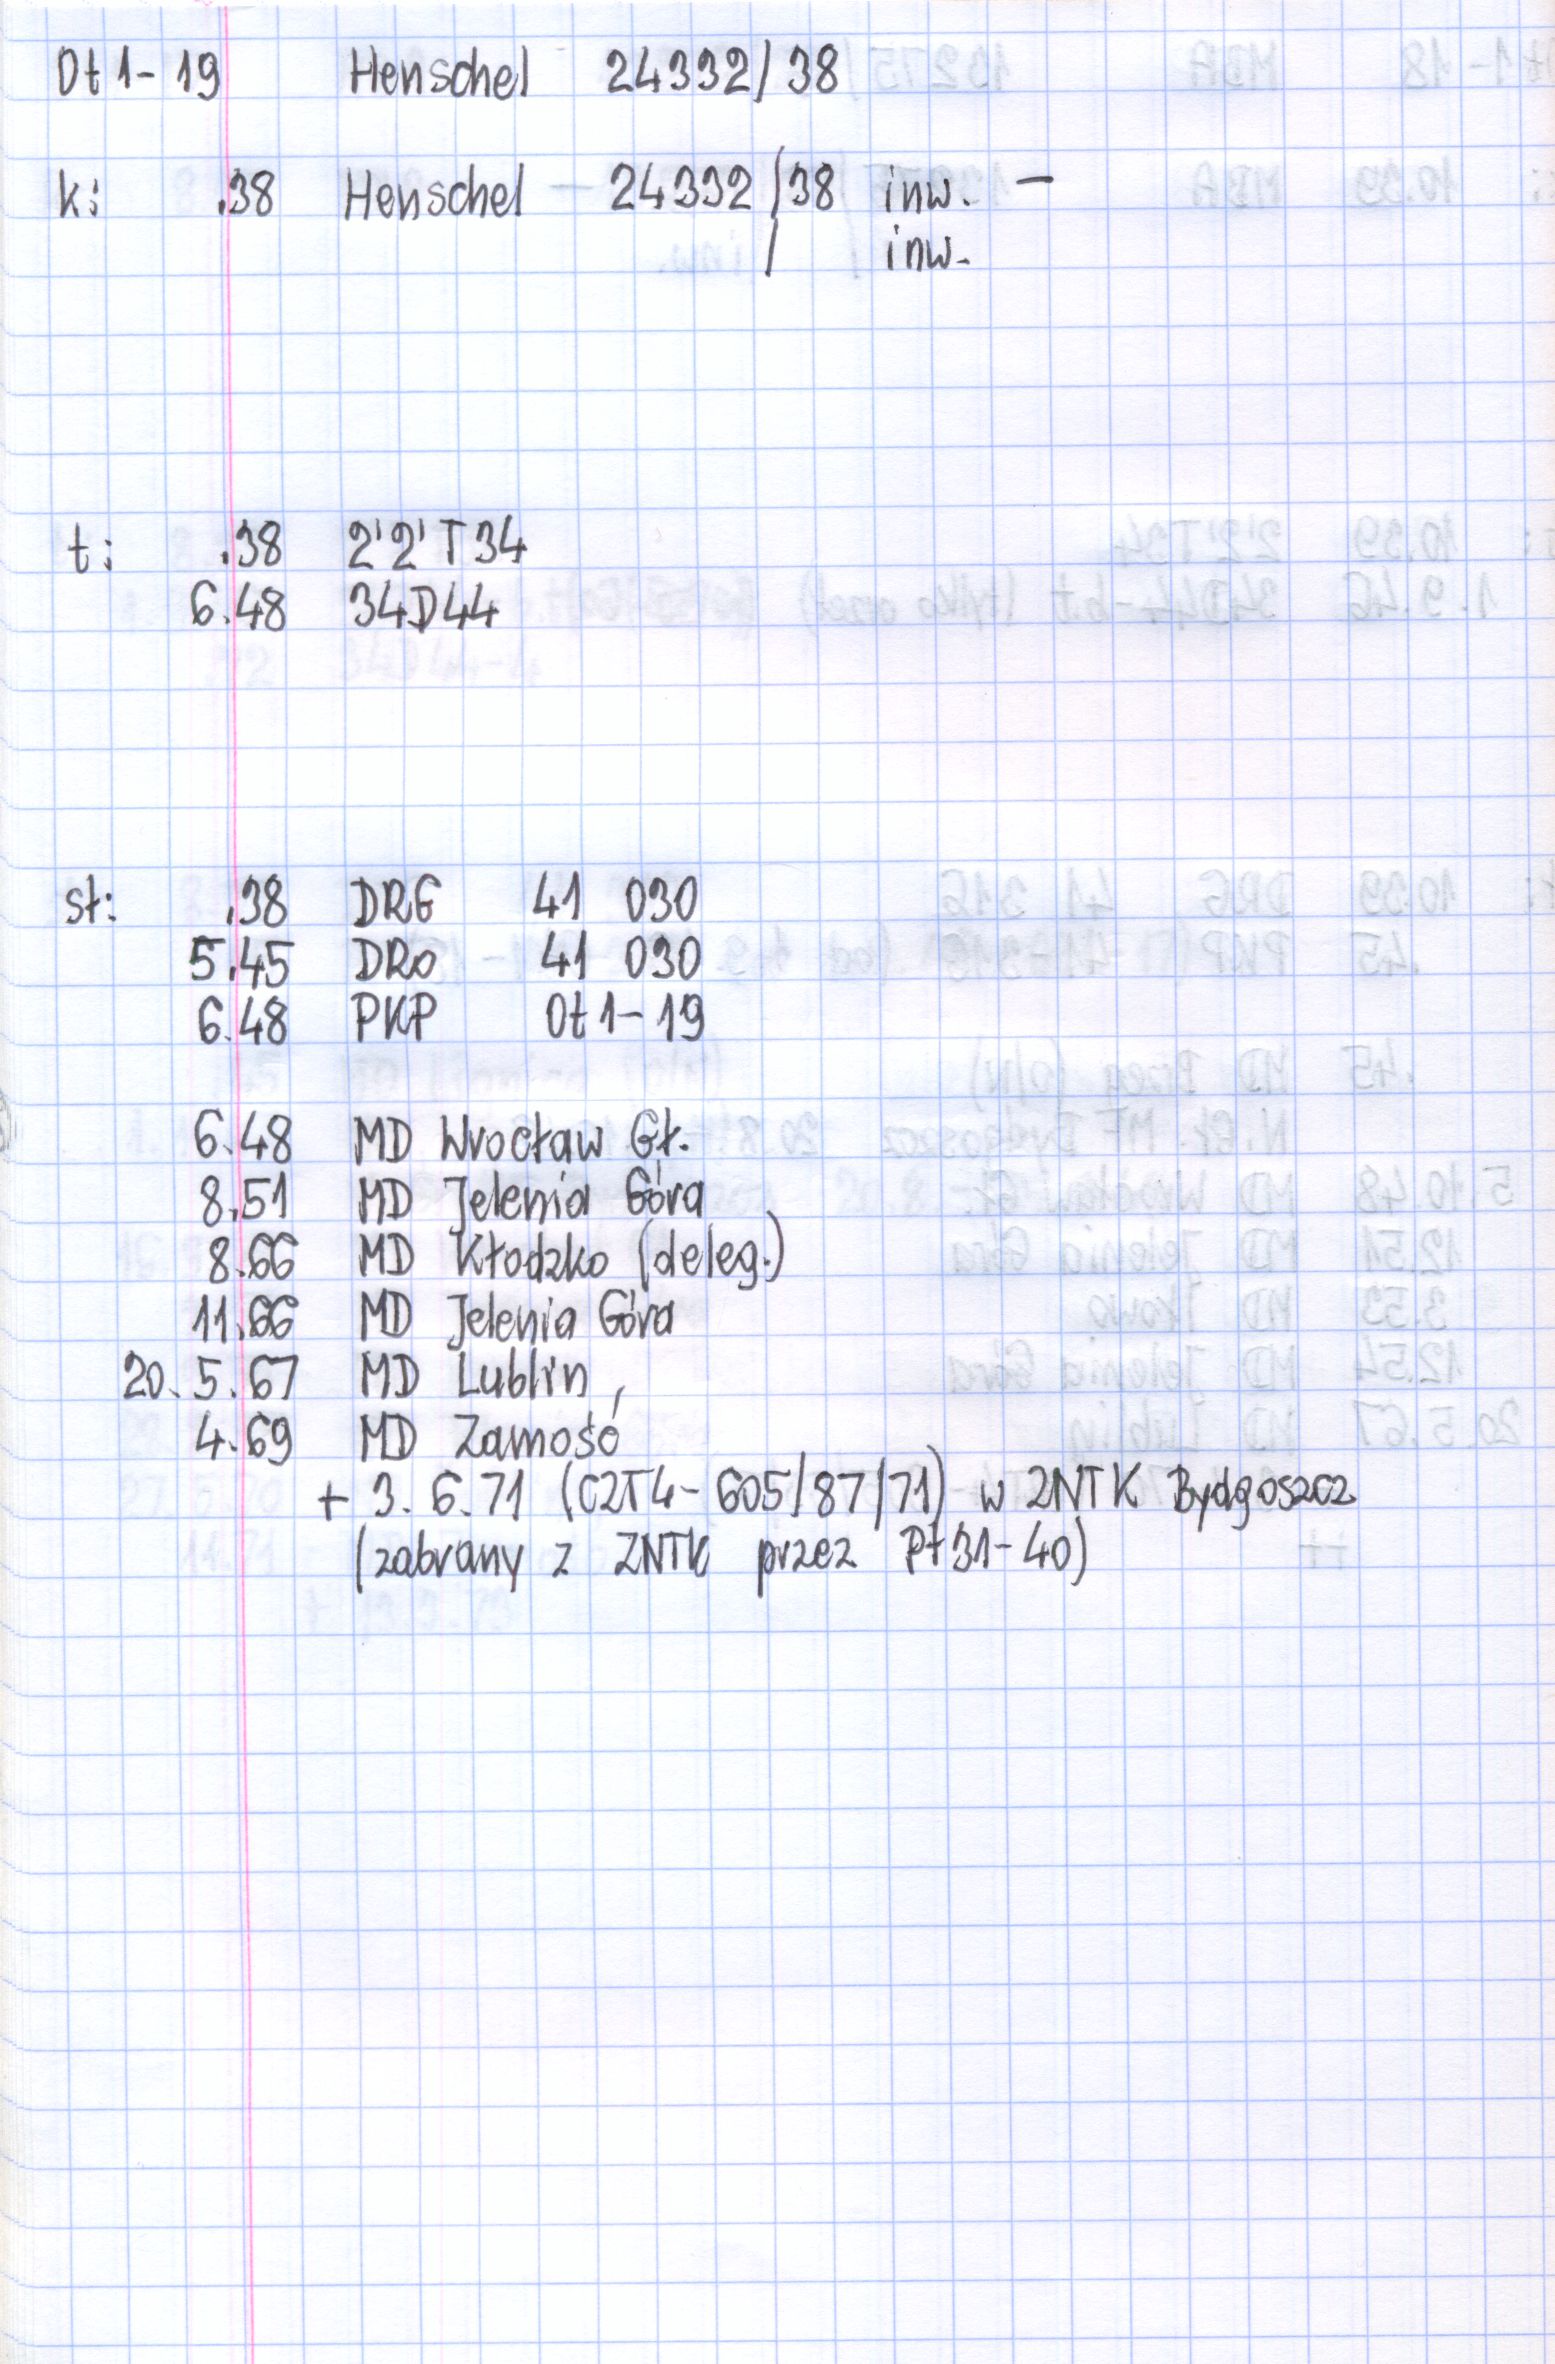 Ot1-19 Henschel 24332/38
k: .38 Henschel - 24332/38 inw. -
/ inw.
t: .38 2'2'T34
6.48 34D44
st: .38 DRG 41 030
5.45 DRo 41 030
6.48 PKP Ot1-19
6.48 MD Wrocław Gł.
8.51 MD Jelenia Góra
8.66 MD Kłodzko (deleg.)
11.66 MD Jelenia Góra
20.5.67 MD Lublin
4.69 MD Zamość
+ 3.6.71 (CZT4-605/87/71) w ZNTK Bydgoszcz
(zabrany z ZNTK przez Pt31-40)